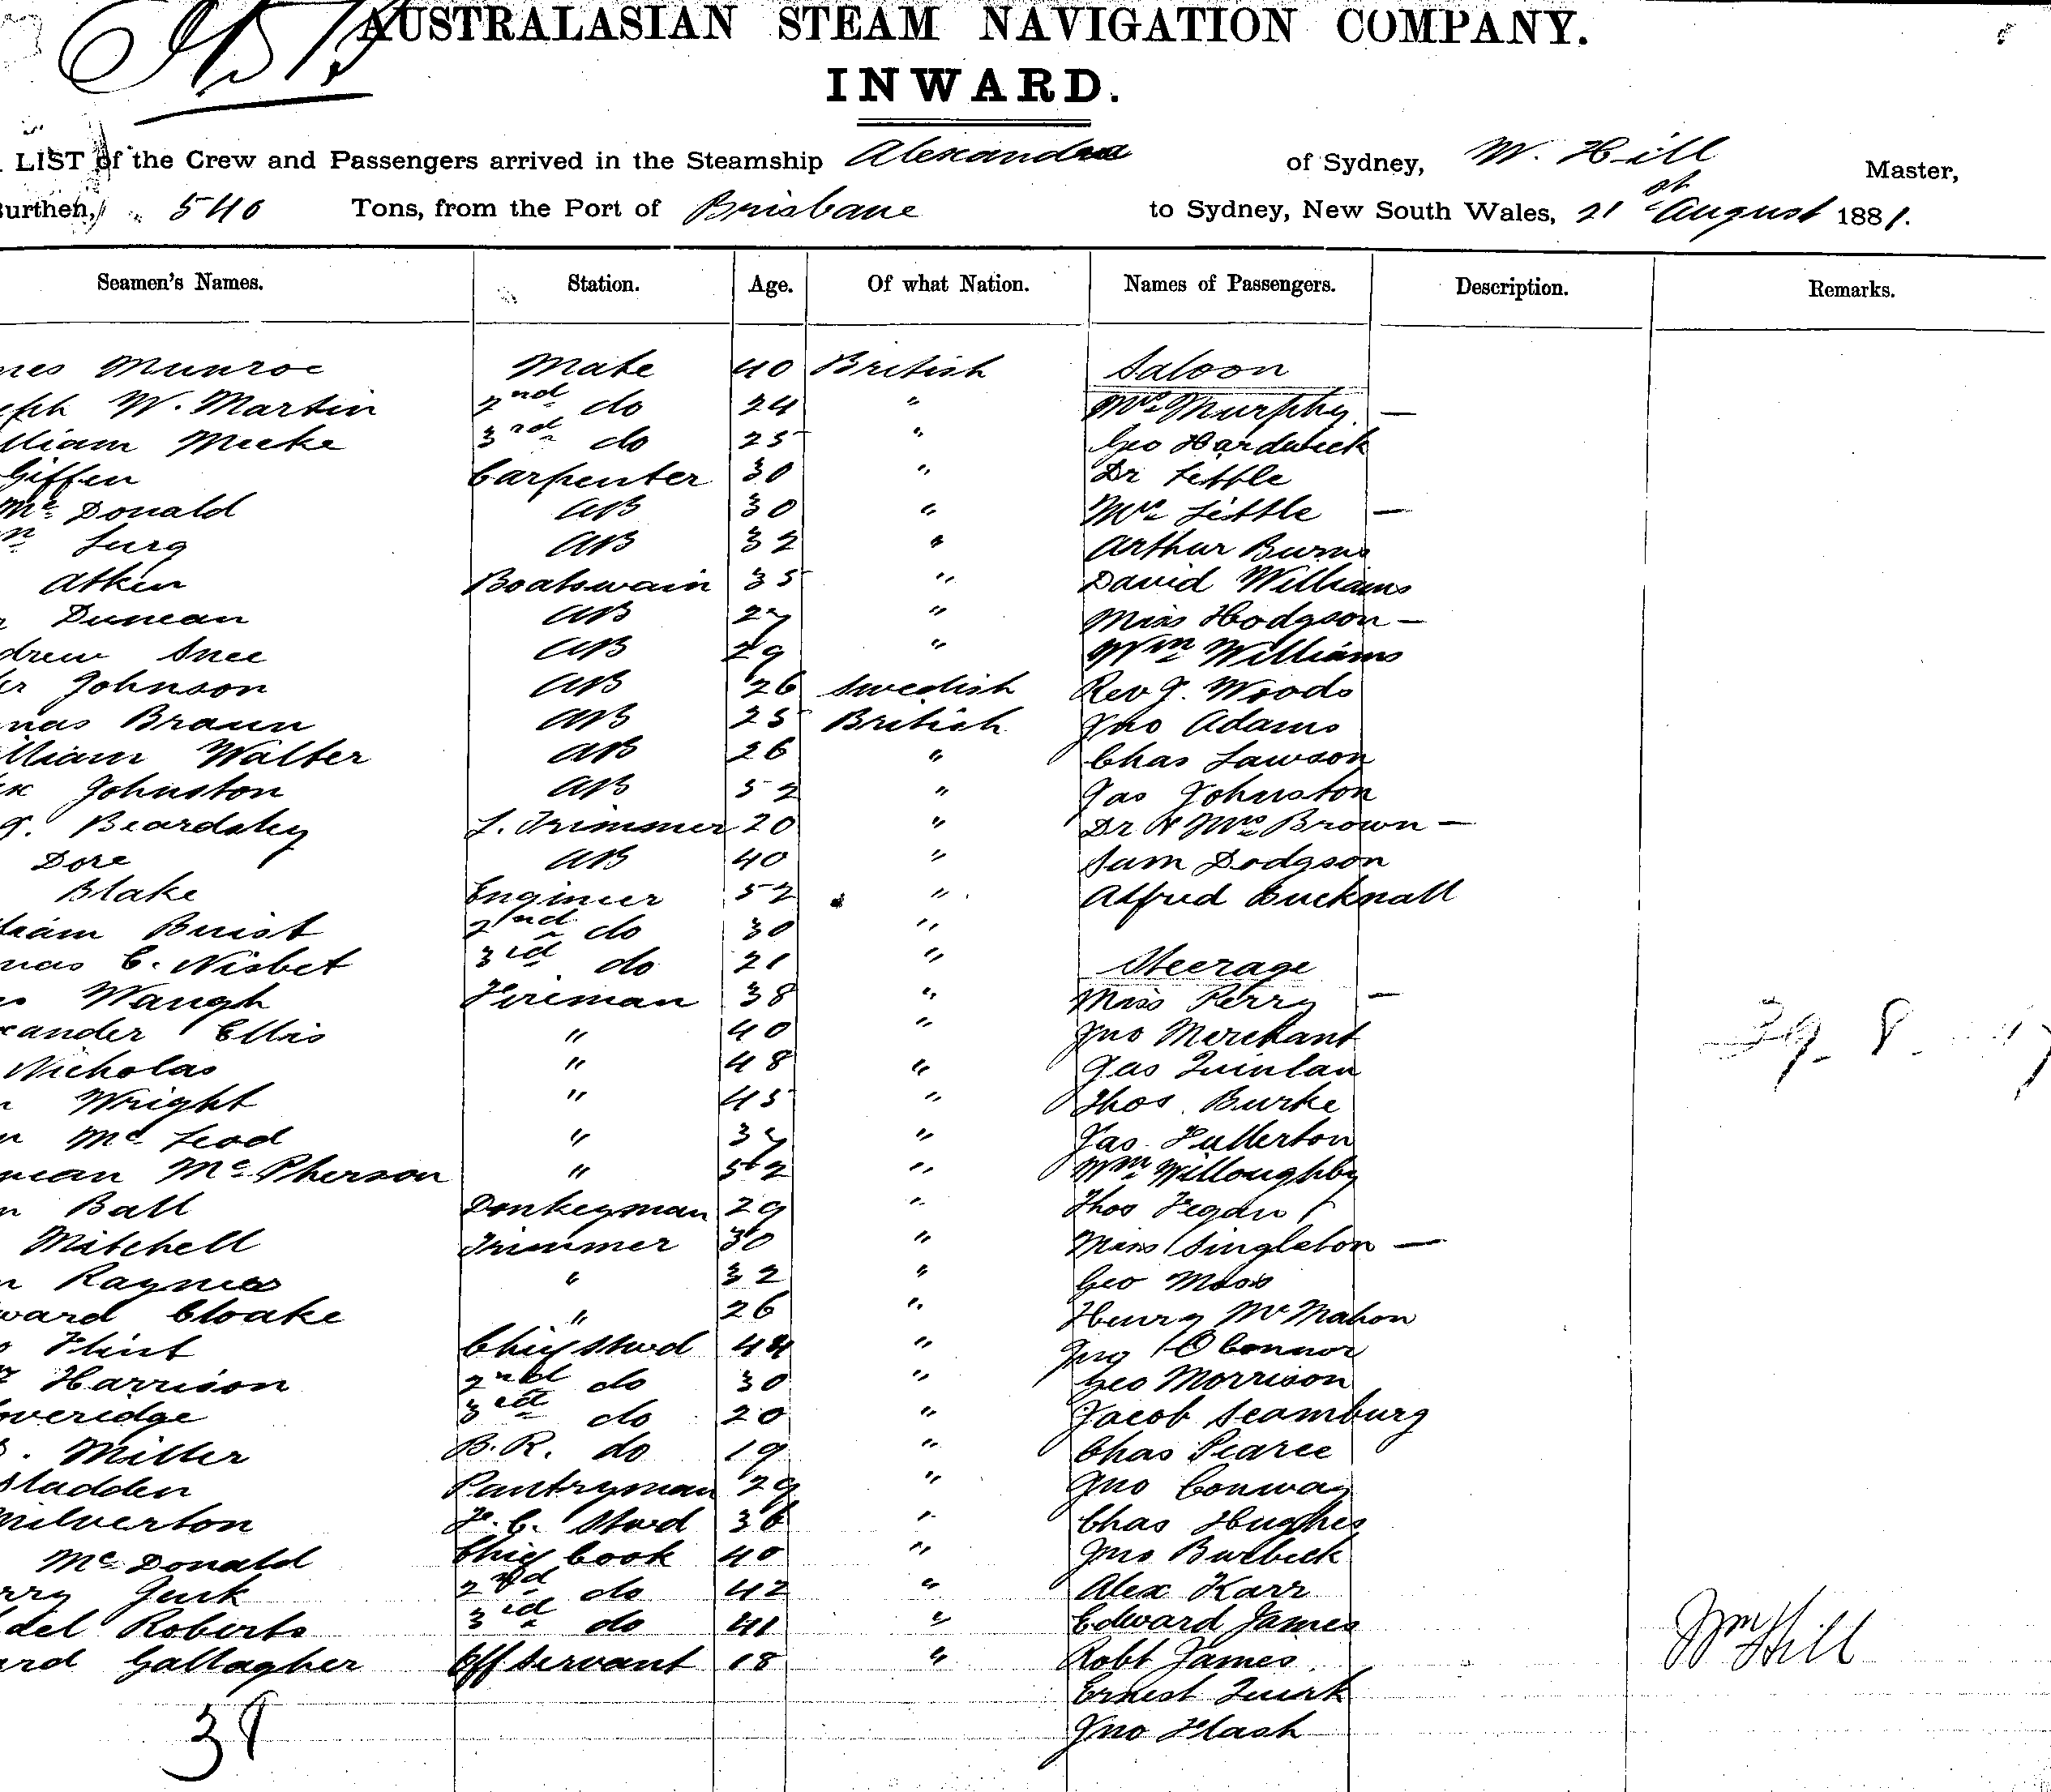 AUSTRALASIAN STEAM NAVIGATION COMPANY.
INWARD.
LIST of the Crew and Passengers arrived in the Steamship Alexandra of Sydney, W. Hill Master,
Burthen, 540 Tons, from the Port of Brisbane to Sydney, New South Wales, 21st August 1881.
Seamen's Names. Station. Age. Of what Nation. Names of Passengers. Description. Remarks.
mes Munroe Mate 40 British Saloon
eph W. Martin 2nd do 24 " Mrs Murphy —
lliam Meeke 3rd do 25 " Geo Hardwick
Giffen Carpenter 30 " Dr
Mc Donald AB 30 " Mrs Little —
AB 32 " Arthur Burns
Atken Boatswain 35 " David Williams
Duncan AB 27 " Miss Hodgson —
drew Snee AB 29 " Wm Williams
er Johnson AB 26 Swedish Rev J. Woods
mas Braun AB 25 British Jno Adams
illiam Walter AB 26 " Chas Lawson
ex Johnston AB 52 " Jas Johnston
J. Beardsley L. Trimmer 20 " Dr & Mrs Brown —
Dore AB 40 " Sam Dodgson
Blake Engineer 52 " Alfred Bucknall
liam Buist 2nd do 30 "
mas C. Nisbet 3rd do 21 " Steerage
Waugh Fireman 38 " Miss Perry —
xander Ellis " 40 " Jno Merchant
Nicholas " 48 " Jas Quinlan
n Wright " 45 " Thos Burke
n Mc Leod " 37 " Jas Fullerton
ncan Mc Pherson " 52 " Wm Willoughby
n Ball Donkeyman 29 " Thos Fegan
Mitchell Trimmer 30 " Miss Singleton —
n " 32 " Geo Moss
ward Cloake " 26 " Henry McMahon
Flint Chief Stwd 44 " O Connor
Harrison 2nd do 30 " Geo Morrison
overidge 3rd do 20 " Jacob Seamburg
Miller B.R. do 19 " Chas Pearce
Sladden Pantryman 29 " Jno Conway
Milverton F.C. Stwd 36 " Chas Hughes
Mc Donald Chief Cook 40 " Jno Burbeck
rry Jurk 2nd do 42 " Alex Karr
del Roberts 3rd do 41 " Edward James
ard Gallagher Off Servant 18 " Robt James
Wm Hill
Ernest Quirk
38
Jno Flash